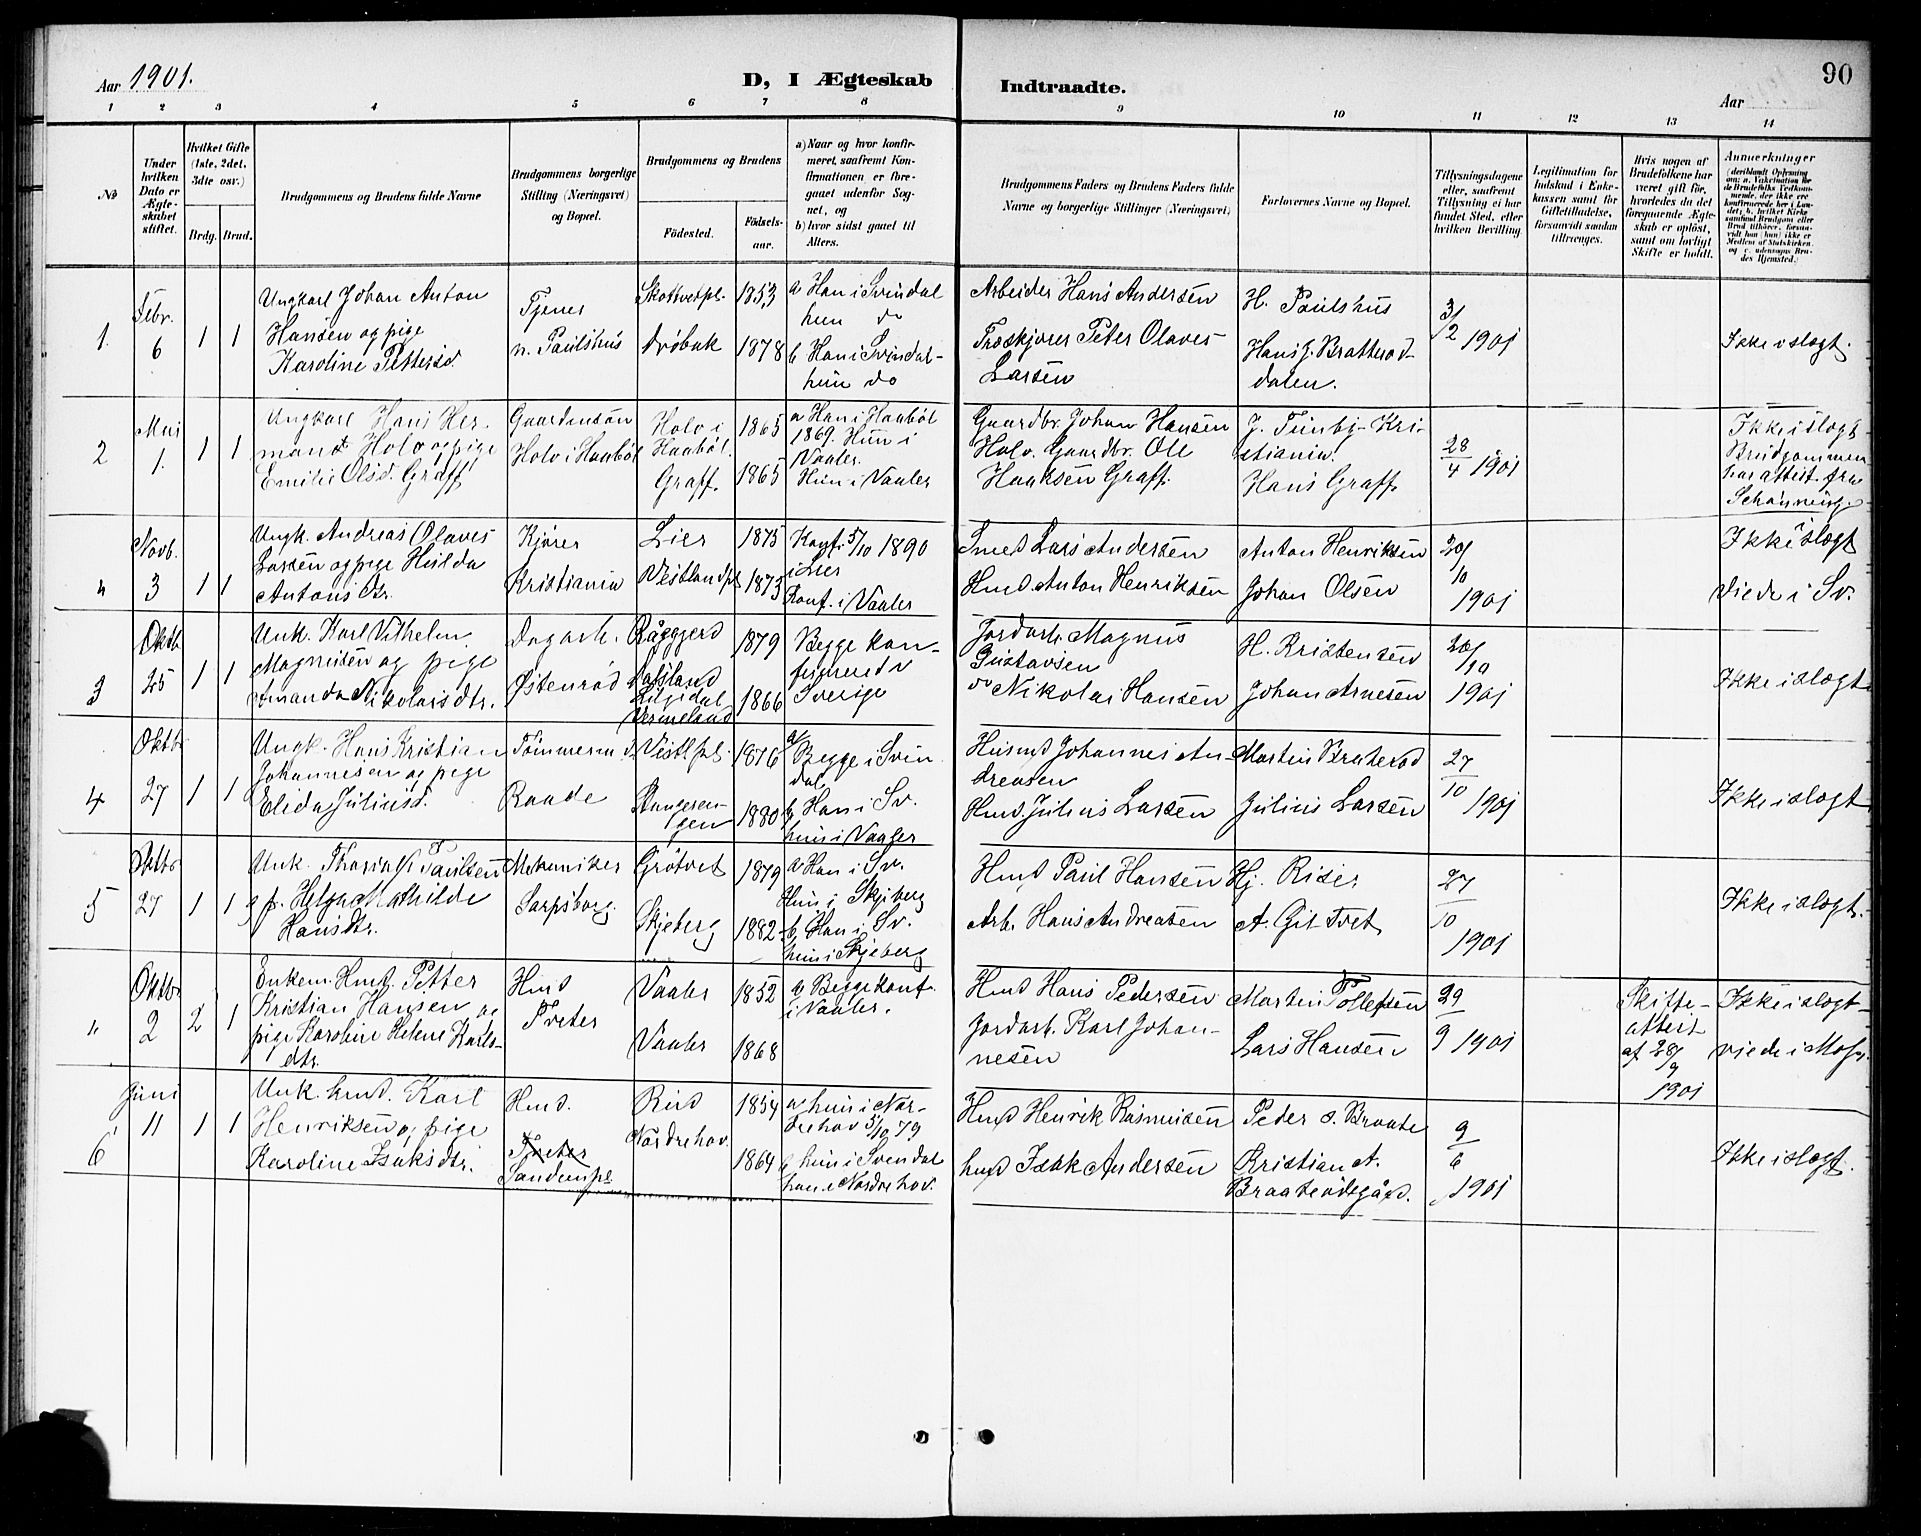 Aar 1901.
D, I Ægteskab
Indtraadte.
Aar
90
1 2 3 4 5 6 7 8 9 10 11 12 13 14
No
Under hvilken Dato er Ægteskabet stiftet.
Hvilket Gifte (1ste, 2det, 3dte osv.)
Brdg. Brud.
Brudgommens og Brudens fulde Navne
Brudgommens borgerlige Stilling (Næringsvei) og Bopæl.
Brudgommens og Brudens
Fødested.
Fødselsaar.
a) Naar og hvor konfirmeret, saafremt Konfirmationen er foregaaet udenfor Sognet, og
b) hvor sidst gaaet til Alters.
Brudgommens Faders og Brudens Faders fulde Navne og borgerlige Stillinger (Næringsvei)
Forlovernes Navne og Bopæl.
Tillysningsdagene eller, saafremt Tillysning ei har fundet Sted, efter hvilken Bevilling.
Legitimation for Indskud i Enkekassen samt for Giftetilladelse, forsaavidt saadan tiltrænges.
Hvis nogen af Brudefolkene har været gift før, hvorledes da det foregaaende Ægteskab er opløst, samt om lovligt Skifte er holdt.
Anmærkninger
1.
Febr.
6
1 1
Ungkarl Johan Anton
Hansen og pige
Karoline Pettersd.
Tjener
n. Paulshus
Skottvetpl.
Drøbak
1853
1878
a Han i Svindal
hun do
b Han i Svindal
hun do
Arbeider Hans Andersen
Træskjærer Peter Olaves
Larsen
H. Paulshus
Hans J. Bratterød
dalen.
3/2 1901
Ikke i slægt.
2
Mai
1.
1 1
Ungkarl Hans Her
mand Holv og pige
Emilie Olsd. Graff
Gaardmsøn
Holv i Haabøl
Holv i
Haabøl.
Graff.
1865
1865
a Han i Haabøl
1869. Hun i
Vaaler.
Hun i Vaaler
Gaardbr. Johan Hansen
Holv. Gaardbr. Ole
Haaksen Graff.
J. Tunby Kri-
stiania.
Hans Graff.
28/4 1901
Ikke i slægt
Brudgommen
har attest fra
4
Novb.
3
1 1
Ungk. Andreas Olaves
Larsen og pige Hulda
Antons dtr.
Kjører
Kristiania
Lier
Vestlandpl
1875
1873
Konf. 5/10 1890
i Lier
Konf. i Vaaler
Smed Lars Andersen
Hmd. Anton Henriksen
Anton Henriksen
Johan Olsen
20/10
1901
Ikke i slægt
viede i Sv.
3
Oktb
25
1 1
Unk. Karl Vilhelm
Magnusen og pige
Amanda Nikolaisdtr.
Dagarb.
Østenrød
Råggjerd
Dalsland
Vermeland
1879
1866
Begge kon-
firmeret i
Sverige
Jordarb. Magnus
Gustavsen
do Nikolai Hansen
H. Kristensen
Johan Arnesen
20/10
1901
Ikke i slægt
4
Oktb
27
1 1
Ungk. Hans Kristian
Johannesen og pige
Elida Juliusd.
Tømmerm
Raade
Vestl. pl.
Stangeren-
gen
1876
1880
a/ Begge i Svin
dal
b Han i Sv.
hun i Vaaler
Husmd Johannes An-
dreasen
Hmd. Julius Larsen
Martin Braterød
Julius Larsen
27/10 1901
Ikke i slægt
5
Oktb
27
1 1
Unk. Thorvald Paulsen
og p. Helga Mathilde
Hansdtr.
Mekaniker
Sarpsborg.
Grøtvet
Skjeberg
1879
1882
a Han i Sv.
Hun i Skjeberg
b Han i Sv.
hun i Skjeberg
Hmd Paul Hansen
Arb. Hans Andreasen
Hj. Riser
A. Git Tvet
27/10
1901
Ikke i slægt.
"
Oktb
2
2 1
Enkem. Hmd. Petter
Kristian Hansen og
pige Karoline Helene Karls-
dtr.
Hmd
Tveter
Vaaler
Vaaler
1852
1868
a Begge konf.
i Vaaler.
Hmd Hans Pedersen
Jordarb. Karl Johan-
nesen
Martin Tollefsen
Lars Hansen
29/9 1901
Skifte-
attest
af 28/9
1901
Ikke i slægt
viede i Moss
6
Juni
11
1 1
Unk. hmd. Karl
Henriksen og pige
Karoline Isaksdtr.
Hmd.
Tveter
Sandempl
Rud
Nordrehov.
1854
1864
a hun i Nor-
drehov 5/10 79
b hun i Svendal
han i Nordrehov.
Hmd Henrik Rasmusen
hmd Isak Andersen
Peder s. Braate
Kristian A.
Braateødegård.
9/6
1901
Ikke i slægt.